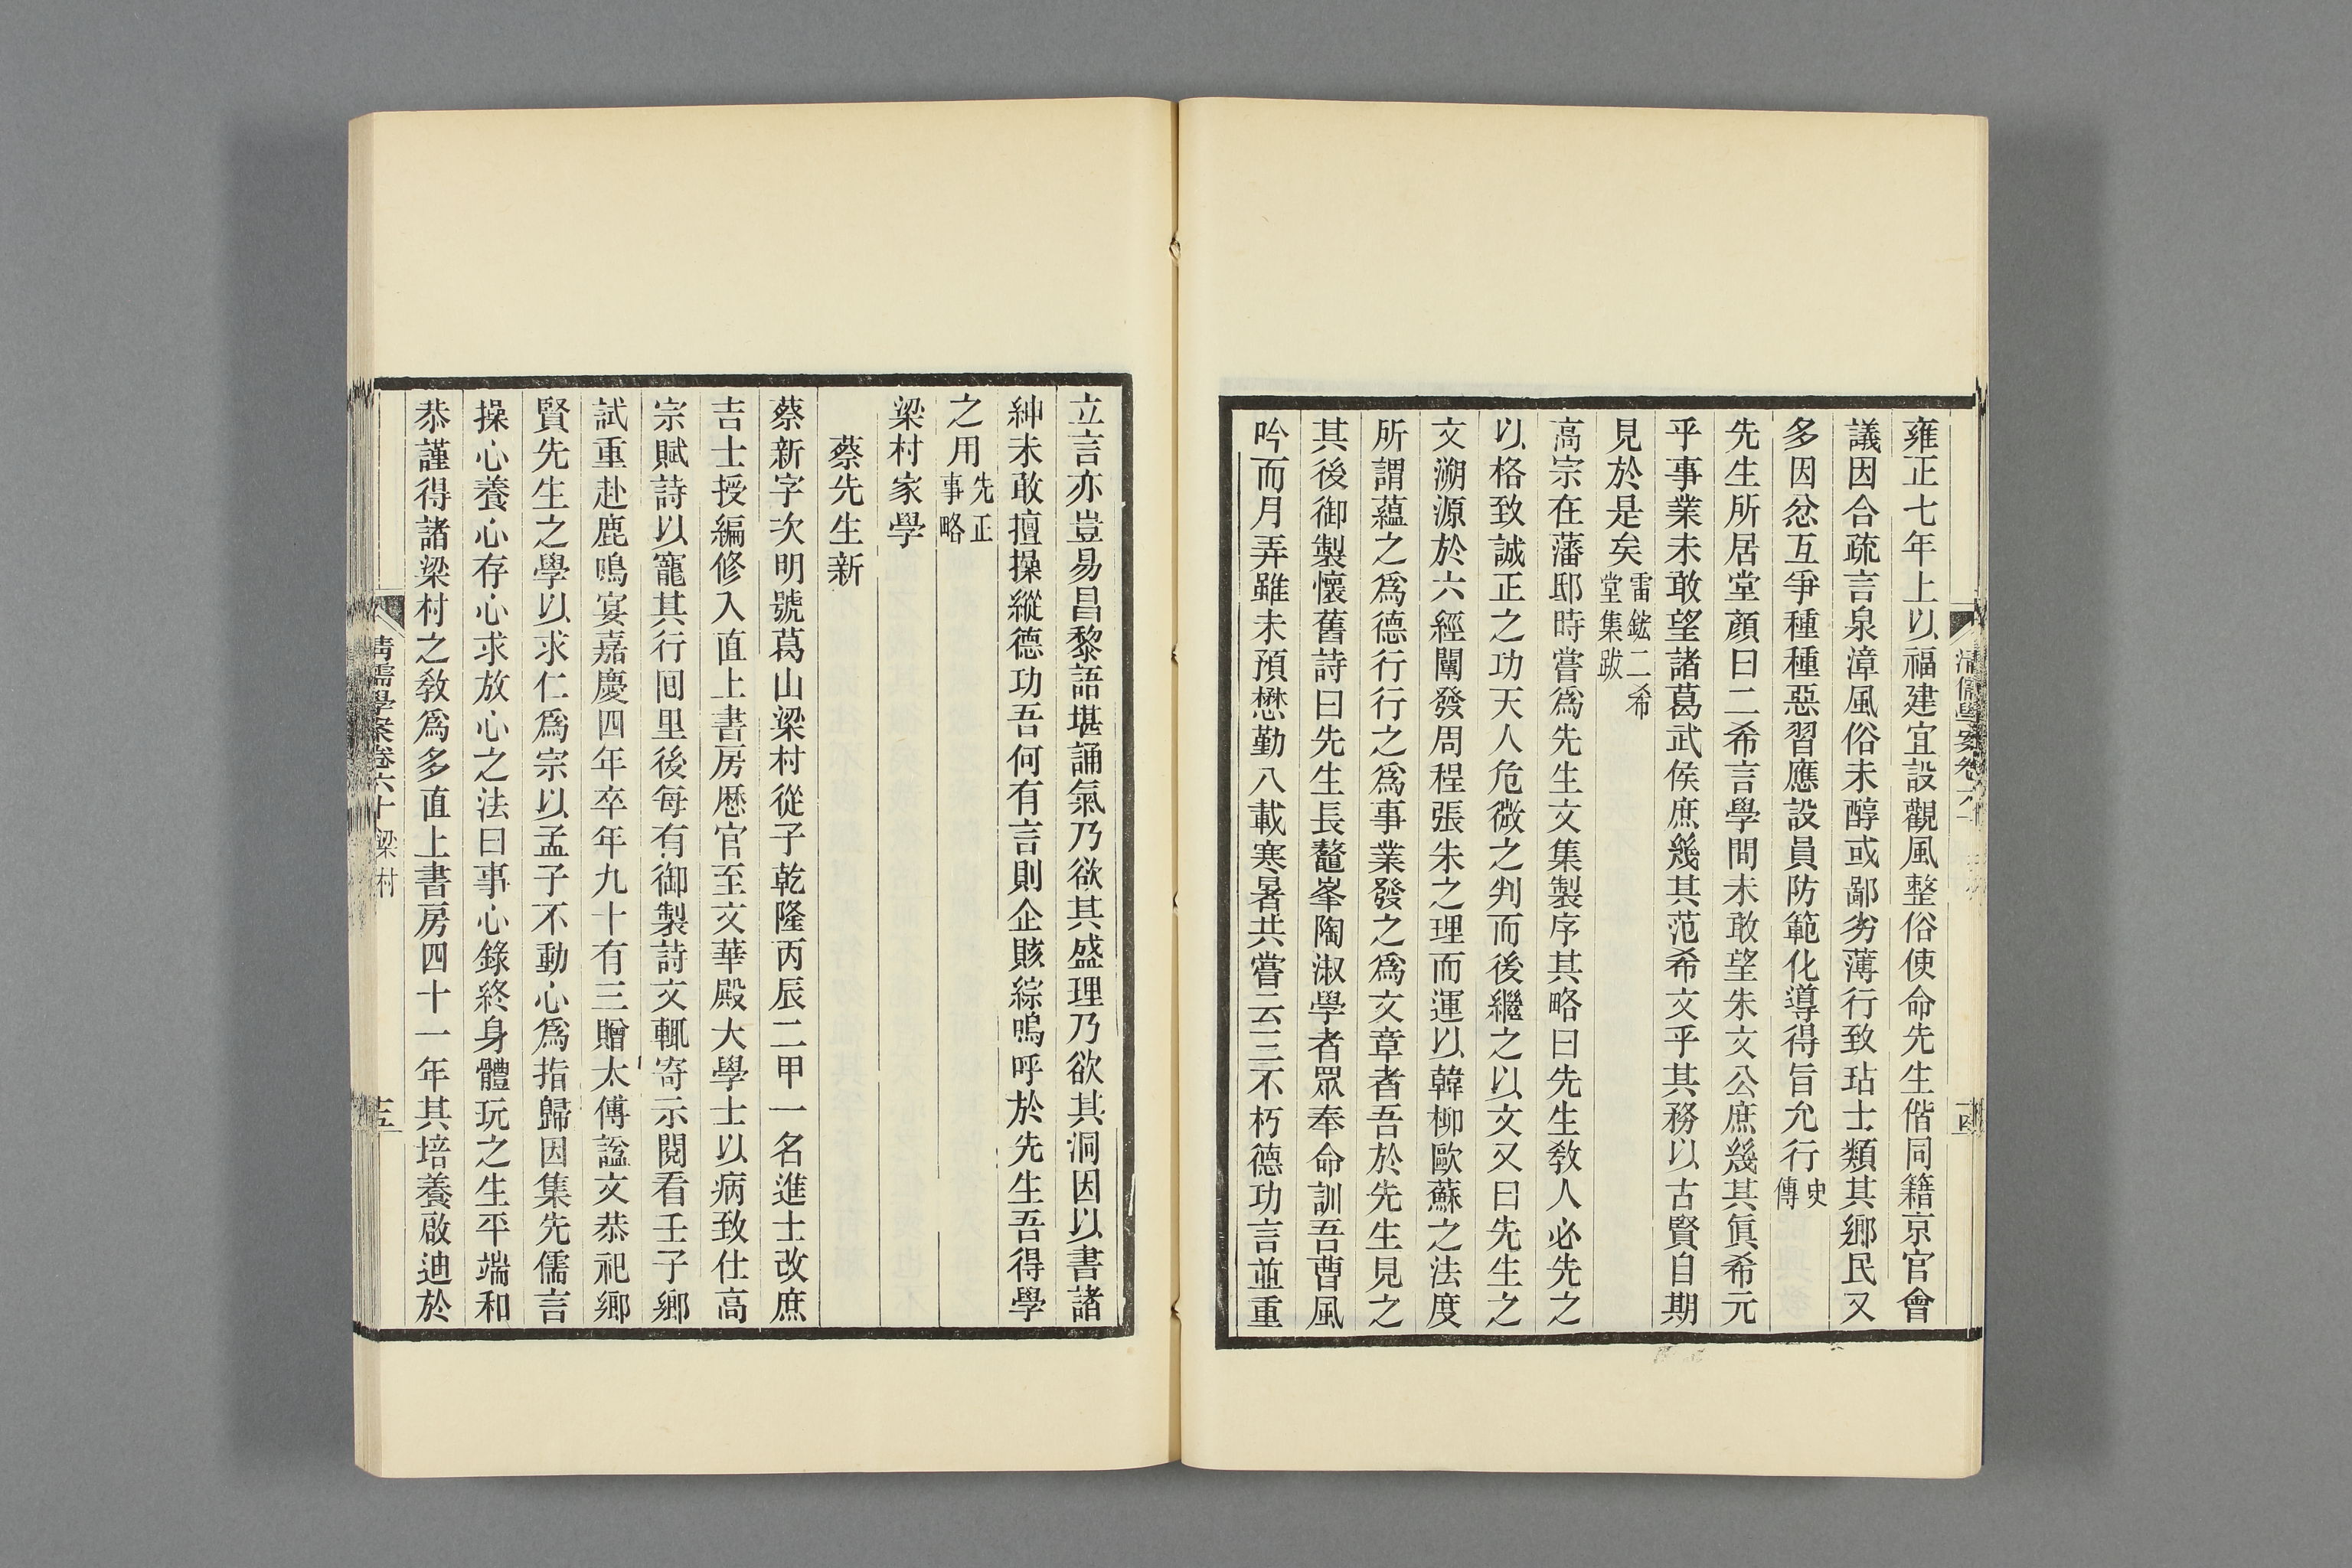 雍正七年上以福建宜設觀風整俗使命先生偕同籍京官會
議因合疏言泉漳風俗未醇或鄙劣薄行致玷士類其鄉民又
多因忿互爭種種惡習應設員防範化導得旨允行史傳
先生所居堂顏曰二希言學問未敢望朱文公庶幾其眞希元
乎事業未敢望諸葛武侯庶幾其范希文乎其務以古賢自期
見於是矣雷鋐二希堂集跋
高宗在藩邸時嘗爲先生文集製序其略曰先生敎人必先之
以格致誠正之功天人危微之判而後繼之以文又曰先生之
文溯源於六經闡發周程張朱之理而運以韓柳歐蘇之法度
所謂蘊之爲德行行之爲事業發之爲文章者吾於先生見之
其後御製懷舊詩曰先生長鼇峯陶淑學者眾奉命訓吾曹風
吟而月弄雖未預懋勤八載寒暑共嘗云三不朽德功言並重
清儒學案卷六十
十四
立言亦豈易昌黎語堪誦氣乃欲其盛理乃欲其洞因以書諸
紳未敢擅操縱德功吾何有言則企賅綜嗚呼於先生吾得學
之用先正事略
梁村家學
蔡先生新
蔡新字次明號葛山梁村從子乾隆丙辰二甲一名進士改庶
吉士授編修入直上書房歷官至文華殿大學士以病致仕高
宗賦詩以寵其行回里後每有御製詩文輒寄示閱看壬子鄉
試重赴鹿鳴宴嘉慶四年卒年九十有三贈太傅諡文恭祀鄉
賢先生之學以求仁爲宗以孟子不動心爲指歸因集先儒言
操心養心存心求放心之法曰事心錄終身體玩之生平端和
恭謹得諸梁村之敎爲多直上書房四十一年其培養啟迪於
清儒學案卷六十 梁村
十五